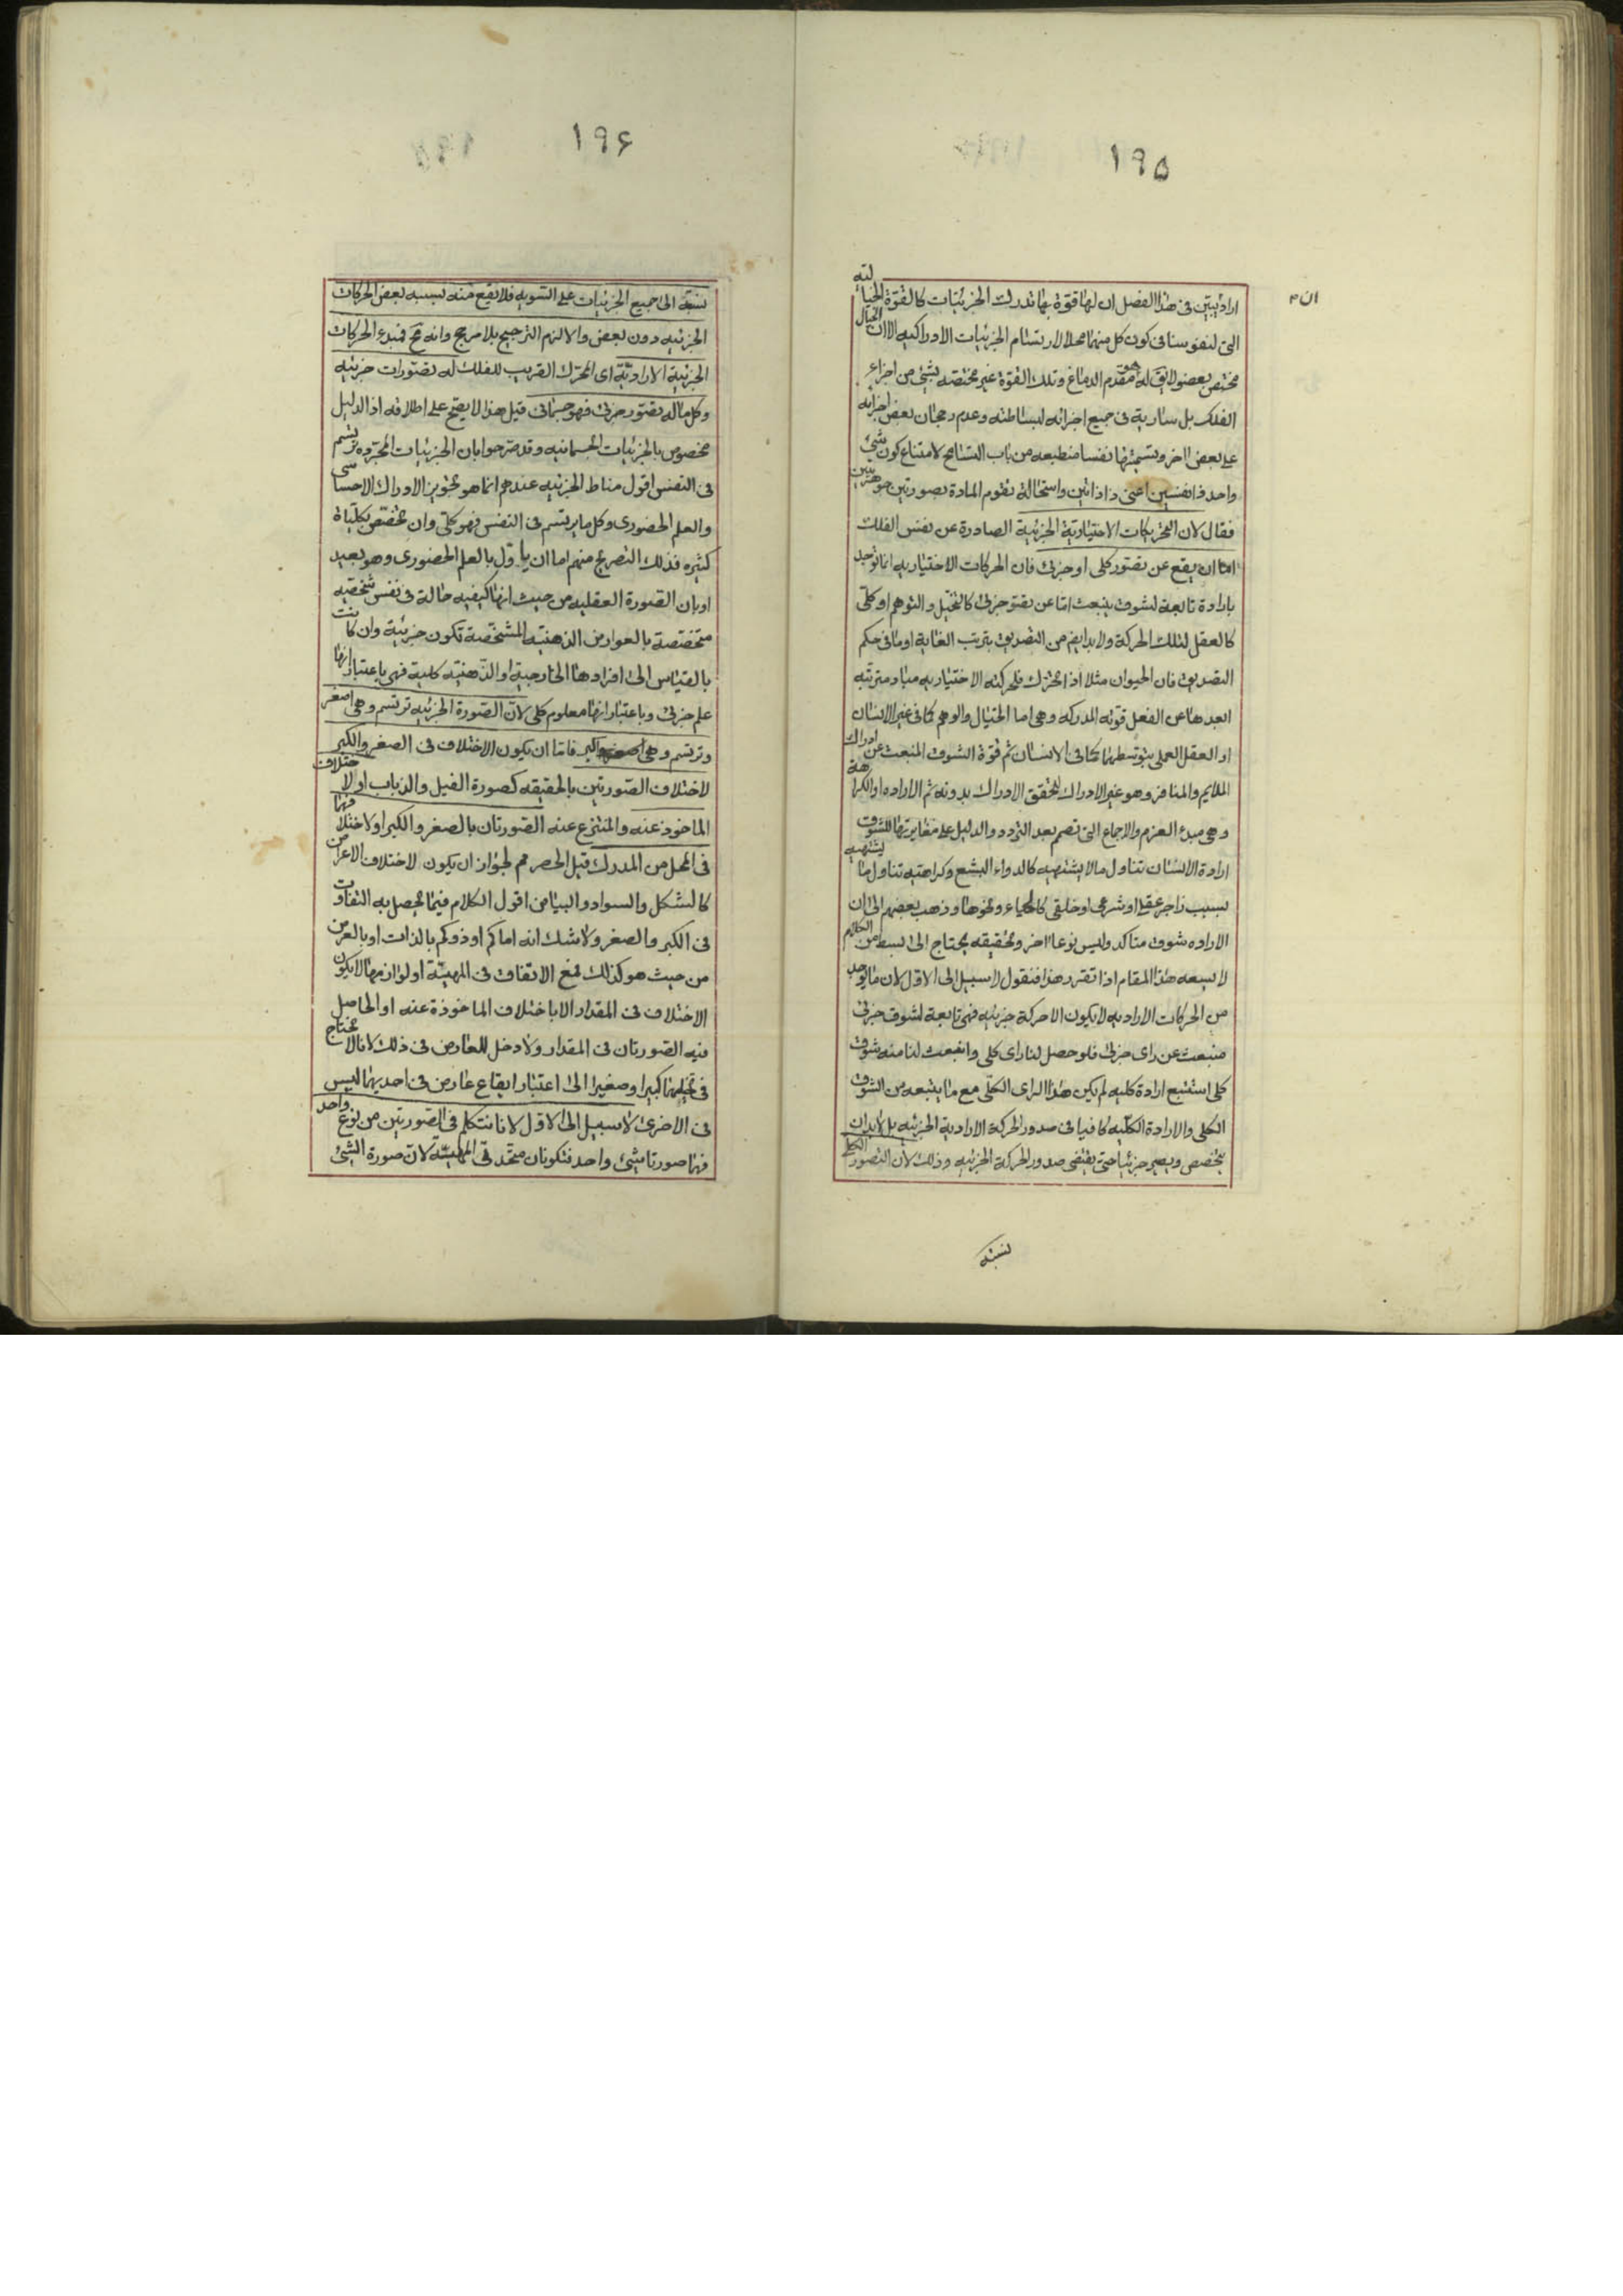 ١٩٥
ان
اراد يبين فى هذا الفصل ان لها قوة بها تدرك الجزئيات كالقوة الخيالية
التى لنفوسنا فى كون كل منهما محلا لارتسام الجزئيات الادراكيه الا ان الخيال
مختص بعضو لايق له هو مقدم الدماغ وتلك القوة غير مختصه بشئ من اجزاء
الفلك بل سارية فى جميع اجزائه لبساطته وعدم رجحان بعض اجزائه
على بعض اخر وتسميتها نفسا منطبعه من باب التسامح لامتناع كون شئ
واحد ذا نفسين اعنى ذا ذاتين واستحالة تقوم المادة بصورتين جوهريتين
فقال لان التحريكات الاختيارية الجزئية الصادرة عن نفس الفلك
اما ان يقع عن تصور كلى او جزئى فان الحركات الاختياريه انما توجد
بارادة تابعة لشوق ينبعث اما عن تصو جزئى كالتخيل والتوهم او كلى
كالعقل لتلك الحركة ولا بد ايض من التصديق بترتب الغاية او ما فى حكم
التصديق فان الحيوان مثلا اذا تحرك فلحركته الاختياريه مباد مترتبه
ابعدها عن الفعل قوته المدركه وهى اما الخيال والوهم كما فى غير الانسان
او العقل العملى بتوسطهما كما فى الانسان ثم قوة الشوق المنبعث عن ادراك
الملايم والمنافر وهو غير الادراك لتحقق الادراك بدونه ثم الاراده او الكراهة
وهى مبدء العزم والاجماع التى تصمم بعد التردد والدليل على مغايرتها للشوق
ارادة الانسان تناول ما لا يشتهيه كالدواء البشع وكراهتيه تناول ما يشتهيه
بسبب زاجر عقلى او شرعى او خلقى كالحياء ونحوها وذهب بعضهم الى ان
الاراده شوق متاكد وليس نوعا اخر وتحقيقه يحتاج الى بسط من الكلام
لا يسعه هذا المقام اذا تقرر هذا فنقول لا سبيل الى الاول لان ما يوجد
من الحركات الاراديه لا يكون الا حركة جزئيه فهى تابعة لشوق جزئى
منبعث عن راى جزئى فلو حصل لنا راى كلى وانبعث لنا منه شوق
كلى استتبع ارادة كليه لم يكن هذا الراى الكلى مع ما يتبعه من الشوق
الكلى والارادة الكليه كافيا فى صدور الحركة الارادية الجزئيه بل لا بد ان
يتخصص ويصير جزئيا حتى يقتضى صدور الحركة الجزئيه وذلك لان التصور الكلى
نسبته
١٩۶
نسبته الى جميع الجزئيات على السويه فلا يقع منه بسببه بعض الحركات
الجزئيه دون بعض والا لزم الترجيح بلا مرجح وانه مح فمبدء الحركات
الجزئية الارادية اى المحرك القريب للفلك له تصورات جزئيه
وكل ما له تصور جزئى فهو جسمانى قيل هذا لا يصح على اطلاقه اذ الدليل
مخصوص بالجزئيات الجسمانيه وقد صرحوا بان الجزئيات المجرده ترتسم
فى النفس اقول مناط الجزئيه عندهم انما هو نحوين الادراك الاحساسى
والعلم الحضورى وكل ما يرتسم فى النفس فهو كلى وان تخصص بكليات
كثيره فذلك التصريح منهم اما ان ياول بالعلم الحضورى وهو بعيد
او بان الصورة العقليه من حيث انها كيفيه حالة فى نفس شخصيه
متخصصة بالعوارض الذهنيه المشخصة تكون جزئية وان كانت
بالقياس الى افرادها الخارجية او الذهنيه كلية فهى باعتبار انها
علم جزئى وباعتبار انها معلوم كلى لان الصورة الجزئيه ترتسم وهى اصغر
وترتسم وهى اكبر فاما ان يكون الاختلاف فى الصغر والكبر
لاختلاف الصورتين بالحقيقه كصورة الفيل والذباب او لاختلاف
الماخوذ عنه والمنتزع عنه الصورتان بالصغر والكبر او لاختلافهما
فى المحل من المدرك قيل الحصر مم لجواز ان يكون لاختلاف الاعراض
كالشكل والسواد والبياض اقول الكلام فيما يحصل به التفاوت
فى الكبر والصغر ولا شك انه اما كم او ذو كم بالذات او بالعرض
من حيث هو كذلك فمع الاتفاق فى المهية او لوازمها لا يكون
الاختلاف فى المقدار الا باختلاف الماخوذة عنه او الحاصل
فيه الصورتان فى المقدار ولا دخل للعارض فى ذلك لانا لا نحتاج
فى تخيلهما كبيرا وصغيرا الى اعتبار ايقاع عارض فى احديهما ليس
فى الاخرى لا سبيل الى الاول لانا نتكلم فى الصورتين من نوع واحد
فهما صورتا شئ واحد فتكونان متحدتى المهية لان صورة الشئ